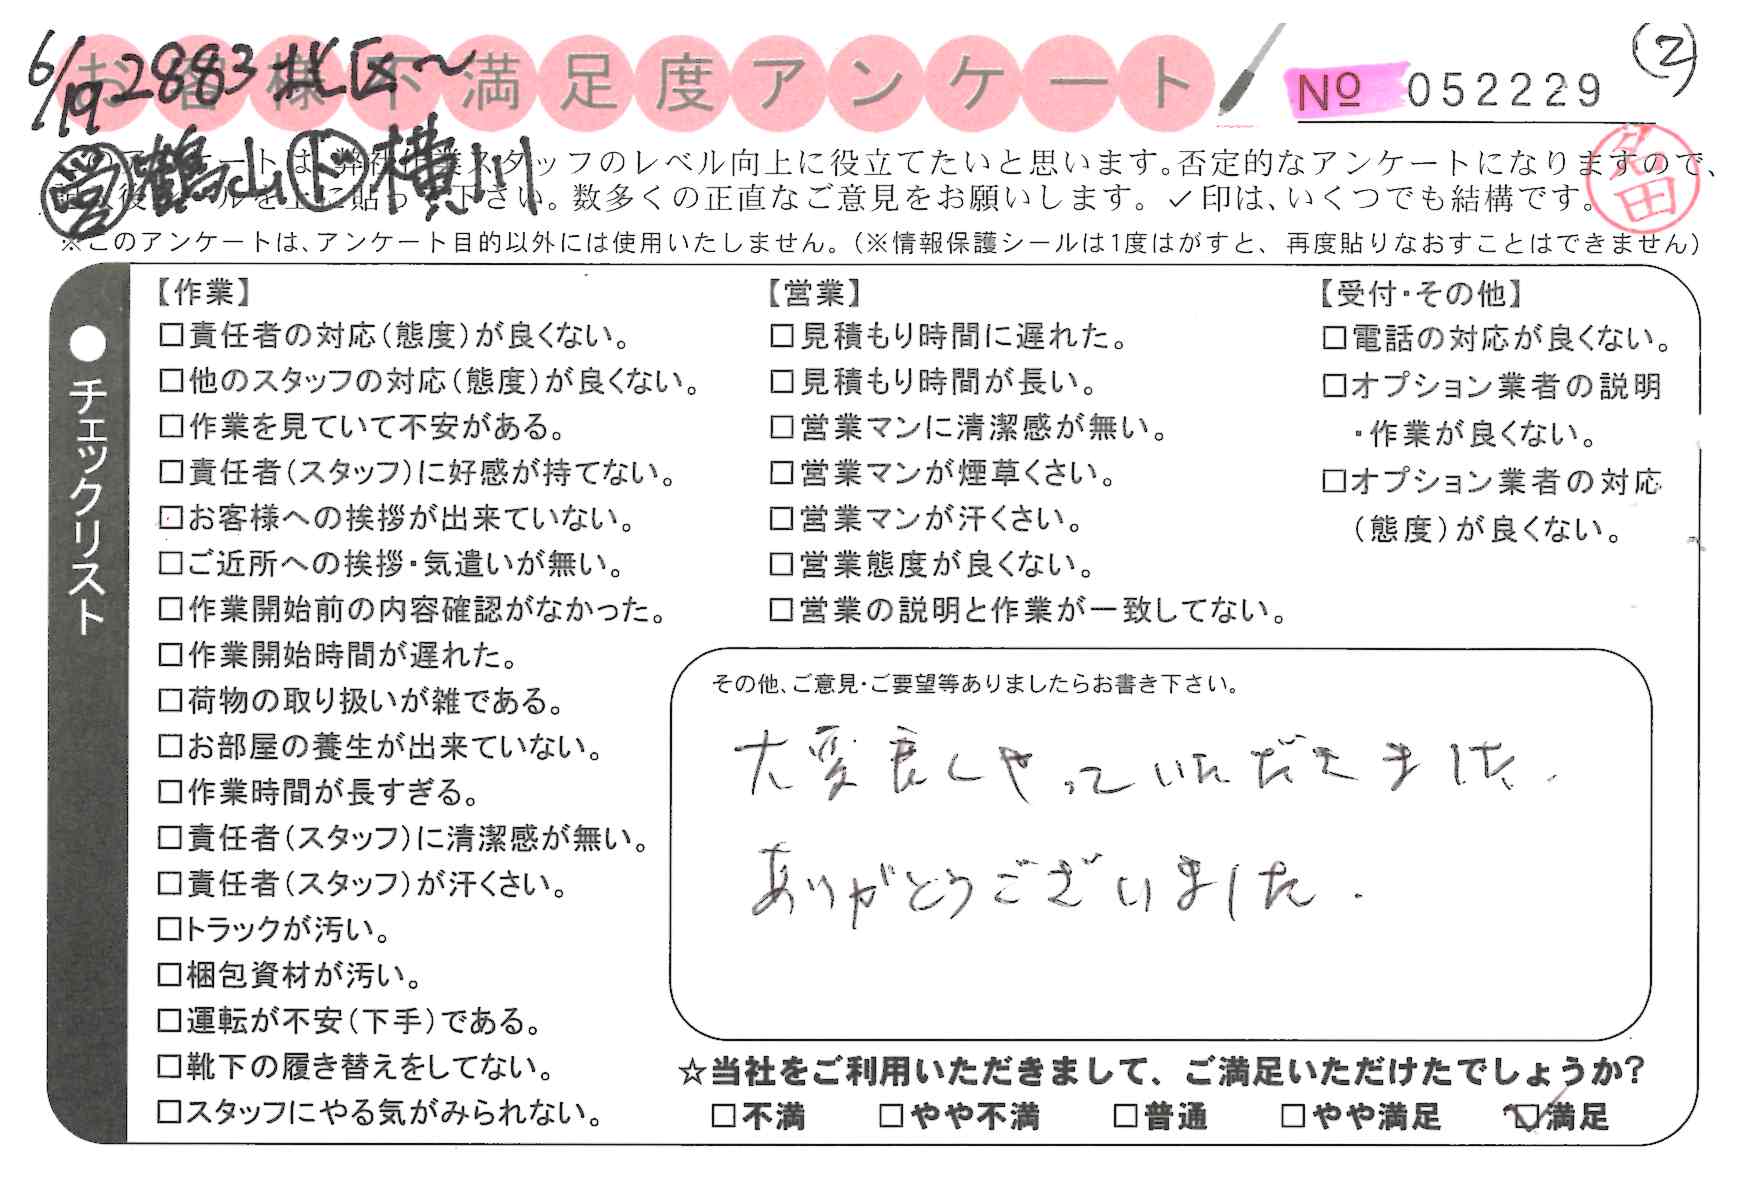 6/19 2883 北区〜
お客様不満足度アンケート
№ 052229
(2)
営 鶴山 ド 横川
このアンケートは、弊社作業スタッフのレベル向上に役立てたいと思います。否定的なアンケートになりますので、
後 シールを上に貼って下さい。数多くの正直なご意見をお願いします。✓印は、いくつでも結構です。
※このアンケートは、アンケート目的以外には使用いたしません。(※情報保護シールは1度はがすと、再度貼りなおすことはできません)
●チェックリスト
【作業】
□責任者の対応(態度)が良くない。
□他のスタッフの対応(態度)が良くない。
□作業を見ていて不安がある。
□責任者(スタッフ)に好感が持てない。
□お客様への挨拶が出来ていない。
□ご近所への挨拶・気遣いが無い。
□作業開始前の内容確認がなかった。
□作業開始時間が遅れた。
□荷物の取り扱いが雑である。
□お部屋の養生が出来ていない。
□作業時間が長すぎる。
□責任者(スタッフ)に清潔感が無い。
□責任者(スタッフ)が汗くさい。
□トラックが汚い。
□梱包資材が汚い。
□運転が不安(下手)である。
□靴下の履き替えをしてない。
□スタッフにやる気がみられない。
【営業】
□見積もり時間に遅れた。
□見積もり時間が長い。
□営業マンに清潔感が無い。
□営業マンが煙草くさい。
□営業マンが汗くさい。
□営業態度が良くない。
□営業の説明と作業が一致してない。
【受付・その他】
□電話の対応が良くない。
□オプション業者の説明
・作業が良くない。
□オプション業者の対応
(態度)が良くない。
その他、ご意見・ご要望等ありましたらお書き下さい。
大変良くやっていただきました.
ありがとうございました.
☆当社をご利用いただきまして、ご満足いただけたでしょうか?
□不満 □やや不満 □普通 □やや満足 ☑満足